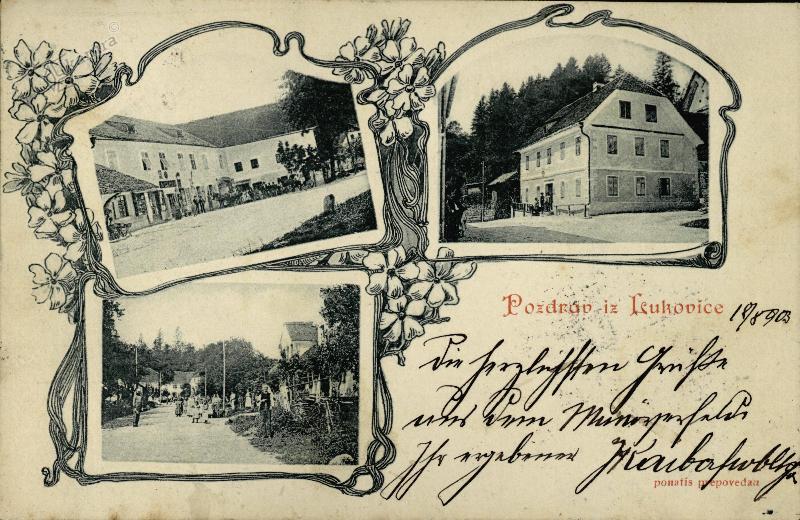 Pozdrav iz Lukovice 19/8 903
Die herzlichsten Grüße
aus dem Manöverfelde
Ihr ergebener
ponatis prepovedan